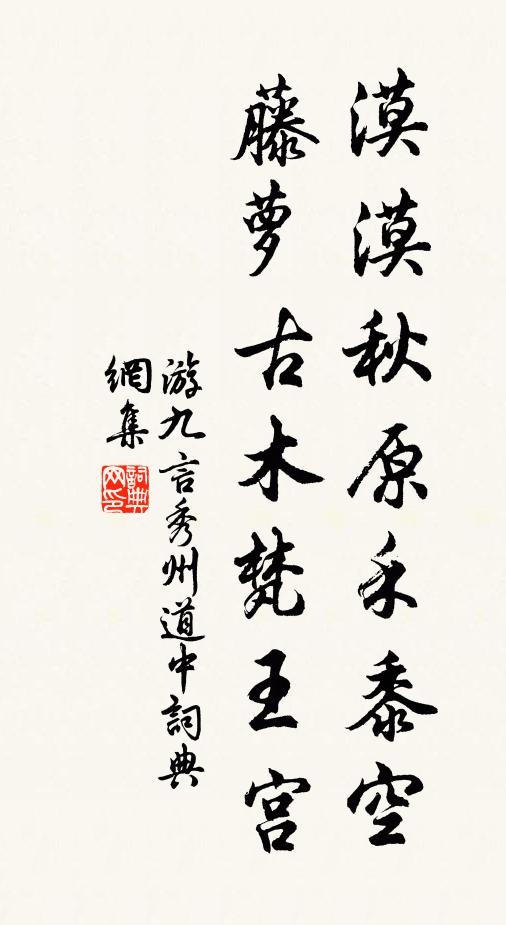 漠漠秋原禾黍空
藤萝古木梵王宫
游九言秀州道中詞典
網集
詞典
网印